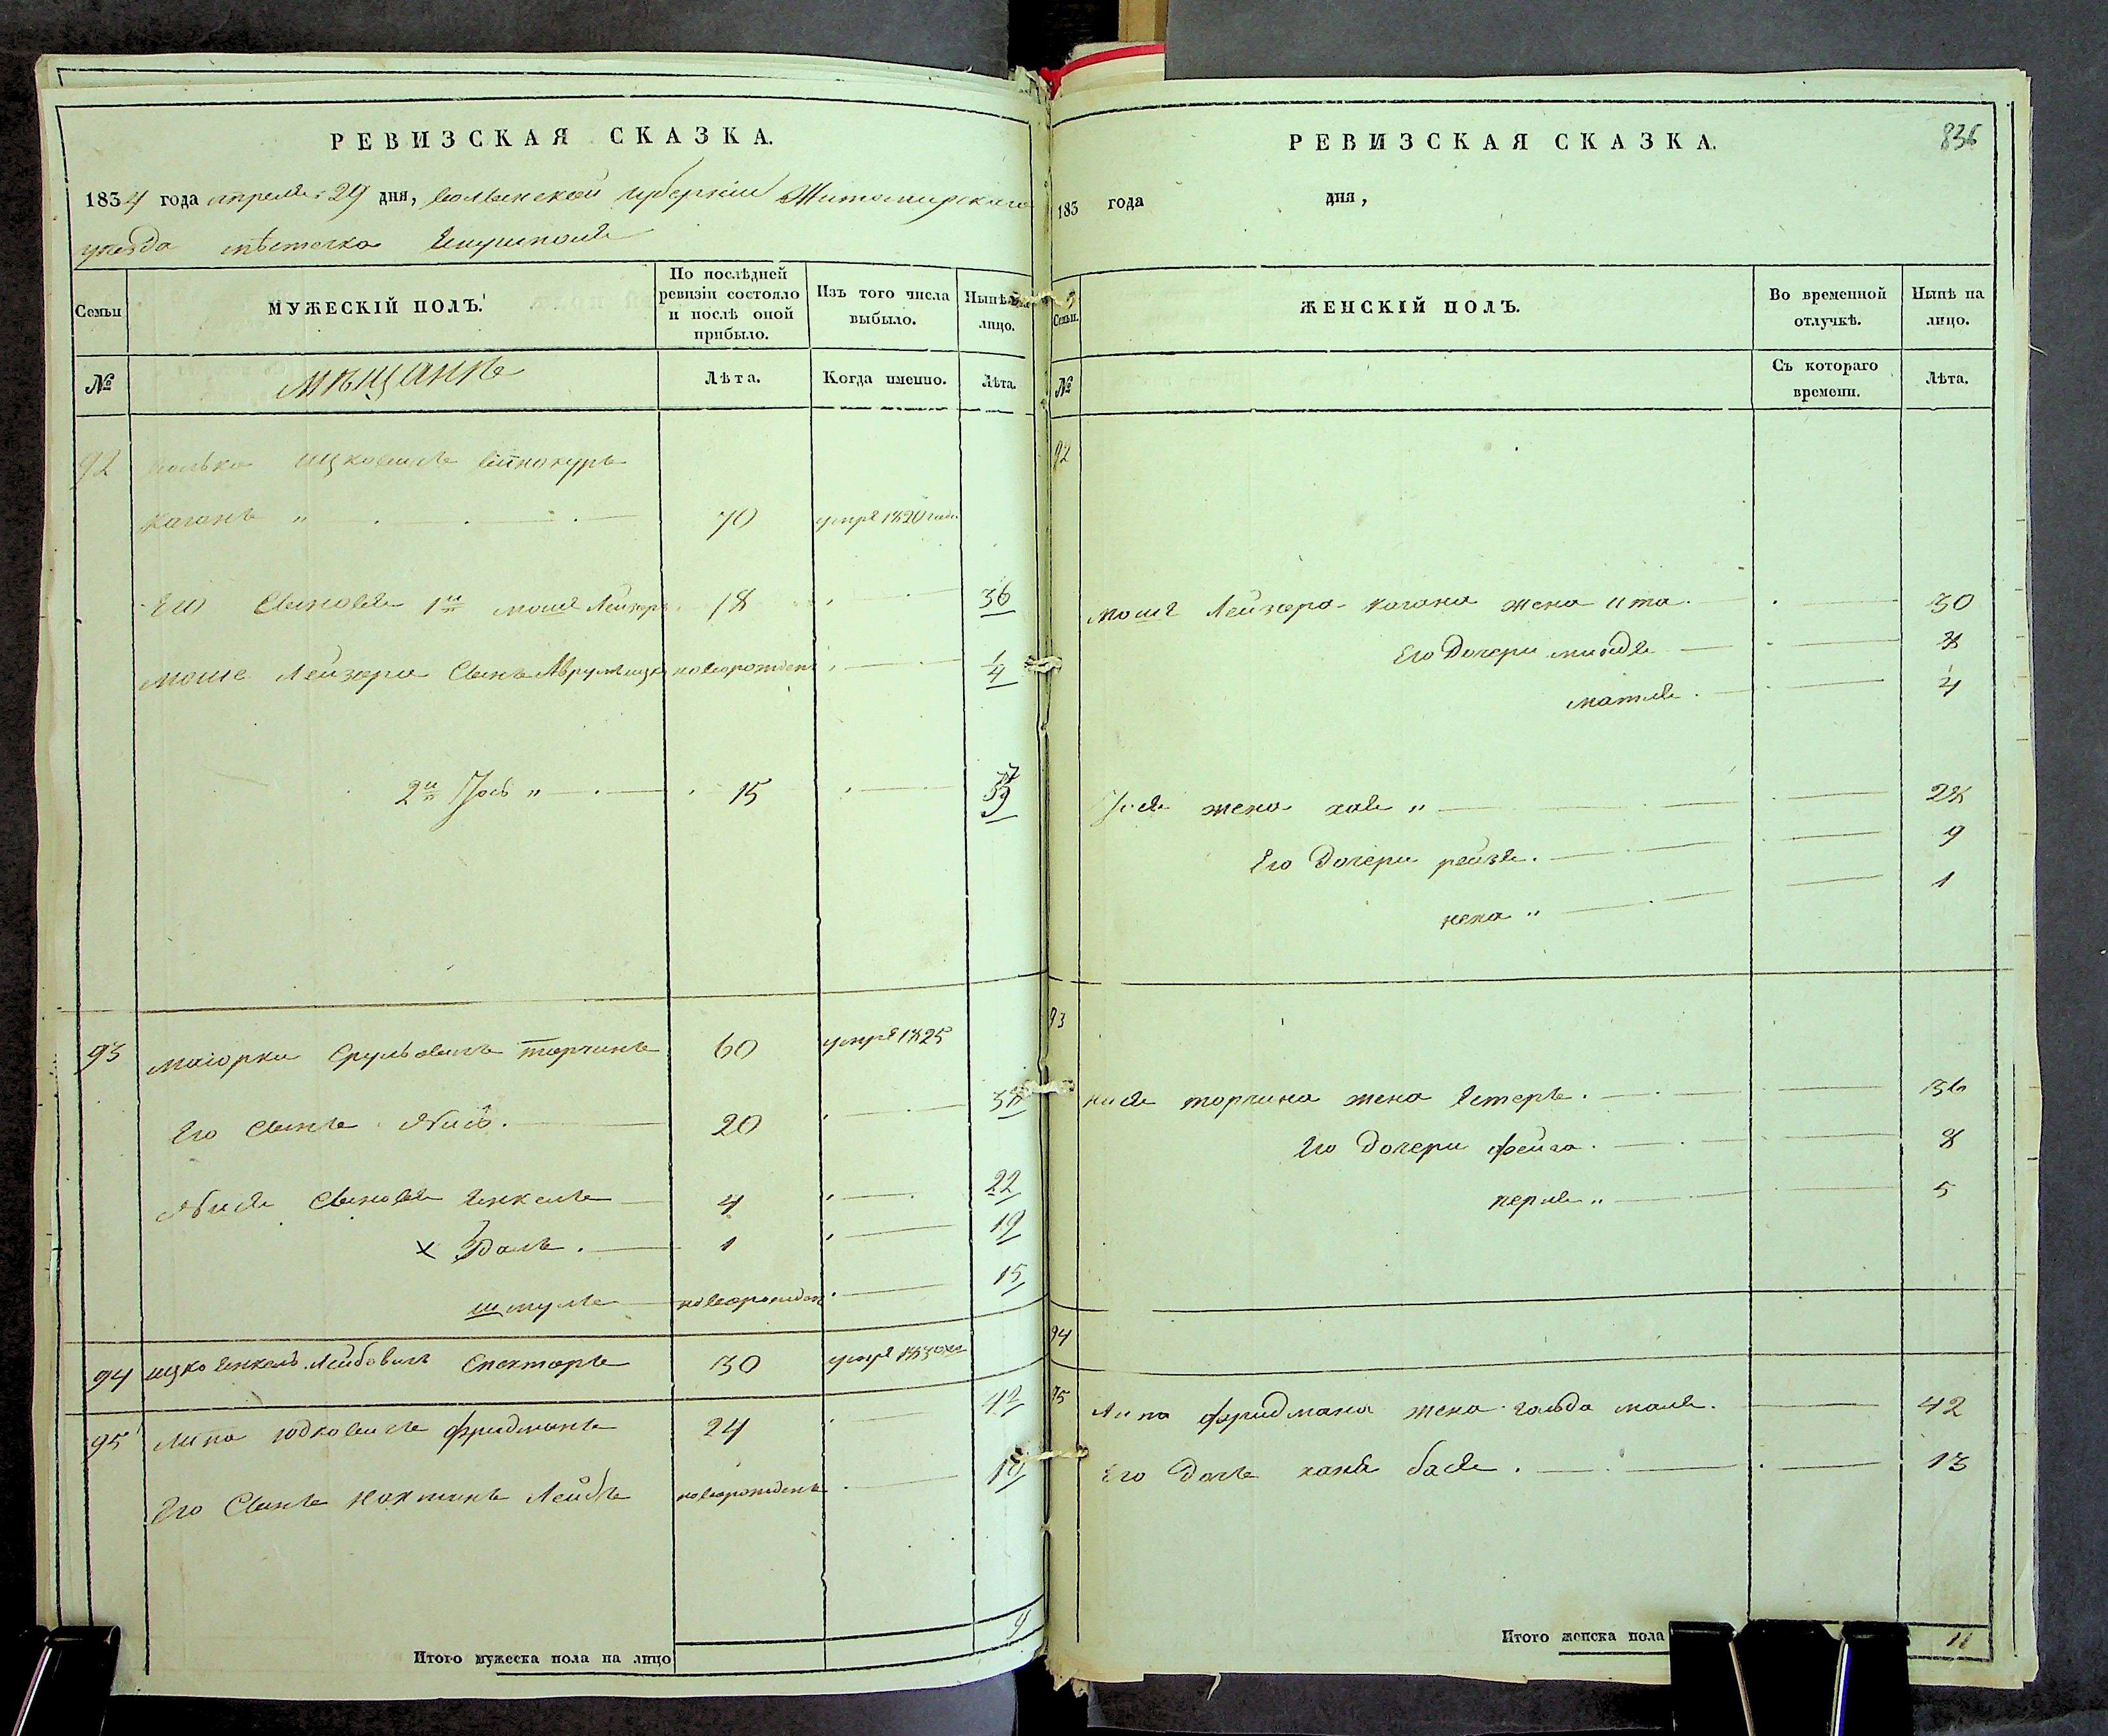 РЕВИЗСКАЯ СКАЗКА.
1834 года апреля 29 дня, Волынской губернии Житомирскаго
уезда местечка
Семьи
МУЖЕСКІЙ ПОЛЪ.
По послѣдней ревизіи состояло и послѣ оной прибыло.
Изъ того числа выбыло.
Нынѣ на лицо.
№
мѣщанъ
Лѣта.
Когда именно.
Лѣта.
92 Волько Ицковичъ Винокуръ
Каганъ " 70 умре 1820 года
Его Сыновья 1й Моше Лейзеръ 18 36
Моше Лейзера Сынъ новорожден 1/4
2й Іось " 15
93 Срульовичъ Торчинъ 60 умре 1825
Его Сынъ 20 38
Сыновья Янкель 4 22
х 1 19
Шмуль новорожден 15
94 Ицко Янкель Лейбовичъ Спекторъ 30 умре
95 Липа Юдковичъ Фридманъ 24 42
Его Сынъ Нахманъ Лейбъ новорожденъ
Итого мужеска пола на лицо 9
РЕВИЗСКАЯ СКАЗКА. 836
183 года дня,
Семьи.
ЖЕНСКІЙ ПОЛЪ.
Во временной отлучкѣ.
Нынѣ на лицо.
№
Съ котораго времени.
Лѣта.
92
Моше Лейзера Кагана жена Ита 30
Его Дочери 8
матля 4
Жена хая " 28
Его Дочери рейзя 9
1
93
Торчина жена Естеръ 36
Его Дочери фейга 8
перля " 5
94
95 Липа фридмана жена голда маля 42
Его Дочь хана бася 13
Итого женска пола 11